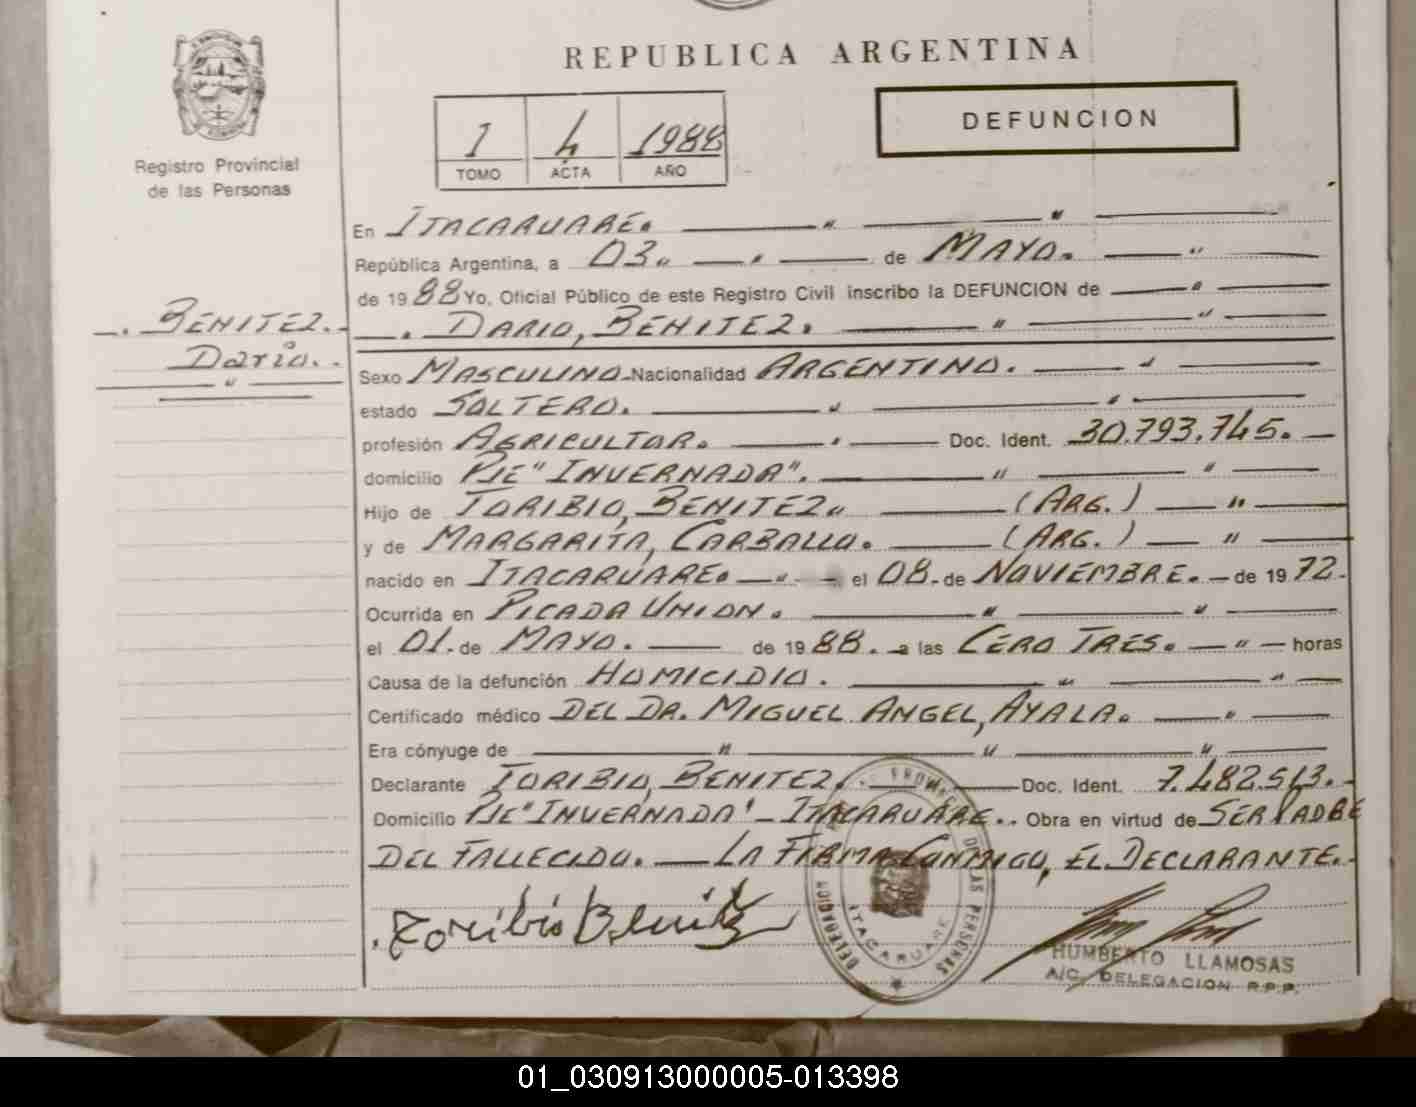 REPUBLICA ARGENTINA
Registro Provincial
de las Personas
1 4 1988
TOMO ACTA AÑO
DEFUNCION
BENITEZ.
Dario.
En ITACARUARE.
República Argentina, a 03. de MAYO.
de 1988 Yo, Oficial Público de este Registro Civil inscribo la DEFUNCION de
DARIO, BENITEZ.
Sexo MASCULINO Nacionalidad ARGENTINO.
estado SOLTERO.
profesión AGRICULTOR. Doc. Ident. 30.793.745.
domicilio PJE "INVERNADA".
Hijo de TORIBIO, BENITEZ. (ARG.)
y de MARGARITA, CARBALLO. (ARG.)
nacido en ITACARUARE. el 08. de NOVIEMBRE. de 1972.
Ocurrida en PICADA UNION.
el 01. de MAYO. de 1988. a las CERO TRES. horas
Causa de la defunción HOMICIDIO.
Certificado médico DEL DR. MIGUEL ANGEL, AYALA.
Era cónyuge de
Declarante TORIBIO, BENITEZ. Doc. Ident. 7.482.513.
Domicilio PJE "INVERNADA" - ITACARUARE. Obra en virtud de SER PADRE
DEL FALLECIDO. LA FIRMA CONMIGO, EL DECLARANTE.
Toribio Benitez
DELEGACION PROVINCIAL DE LAS PERSONAS
ITACARUARE
HUMBERTO LLAMOSAS
A/C. DELEGACION R.P.P.
01_030913000005-013398